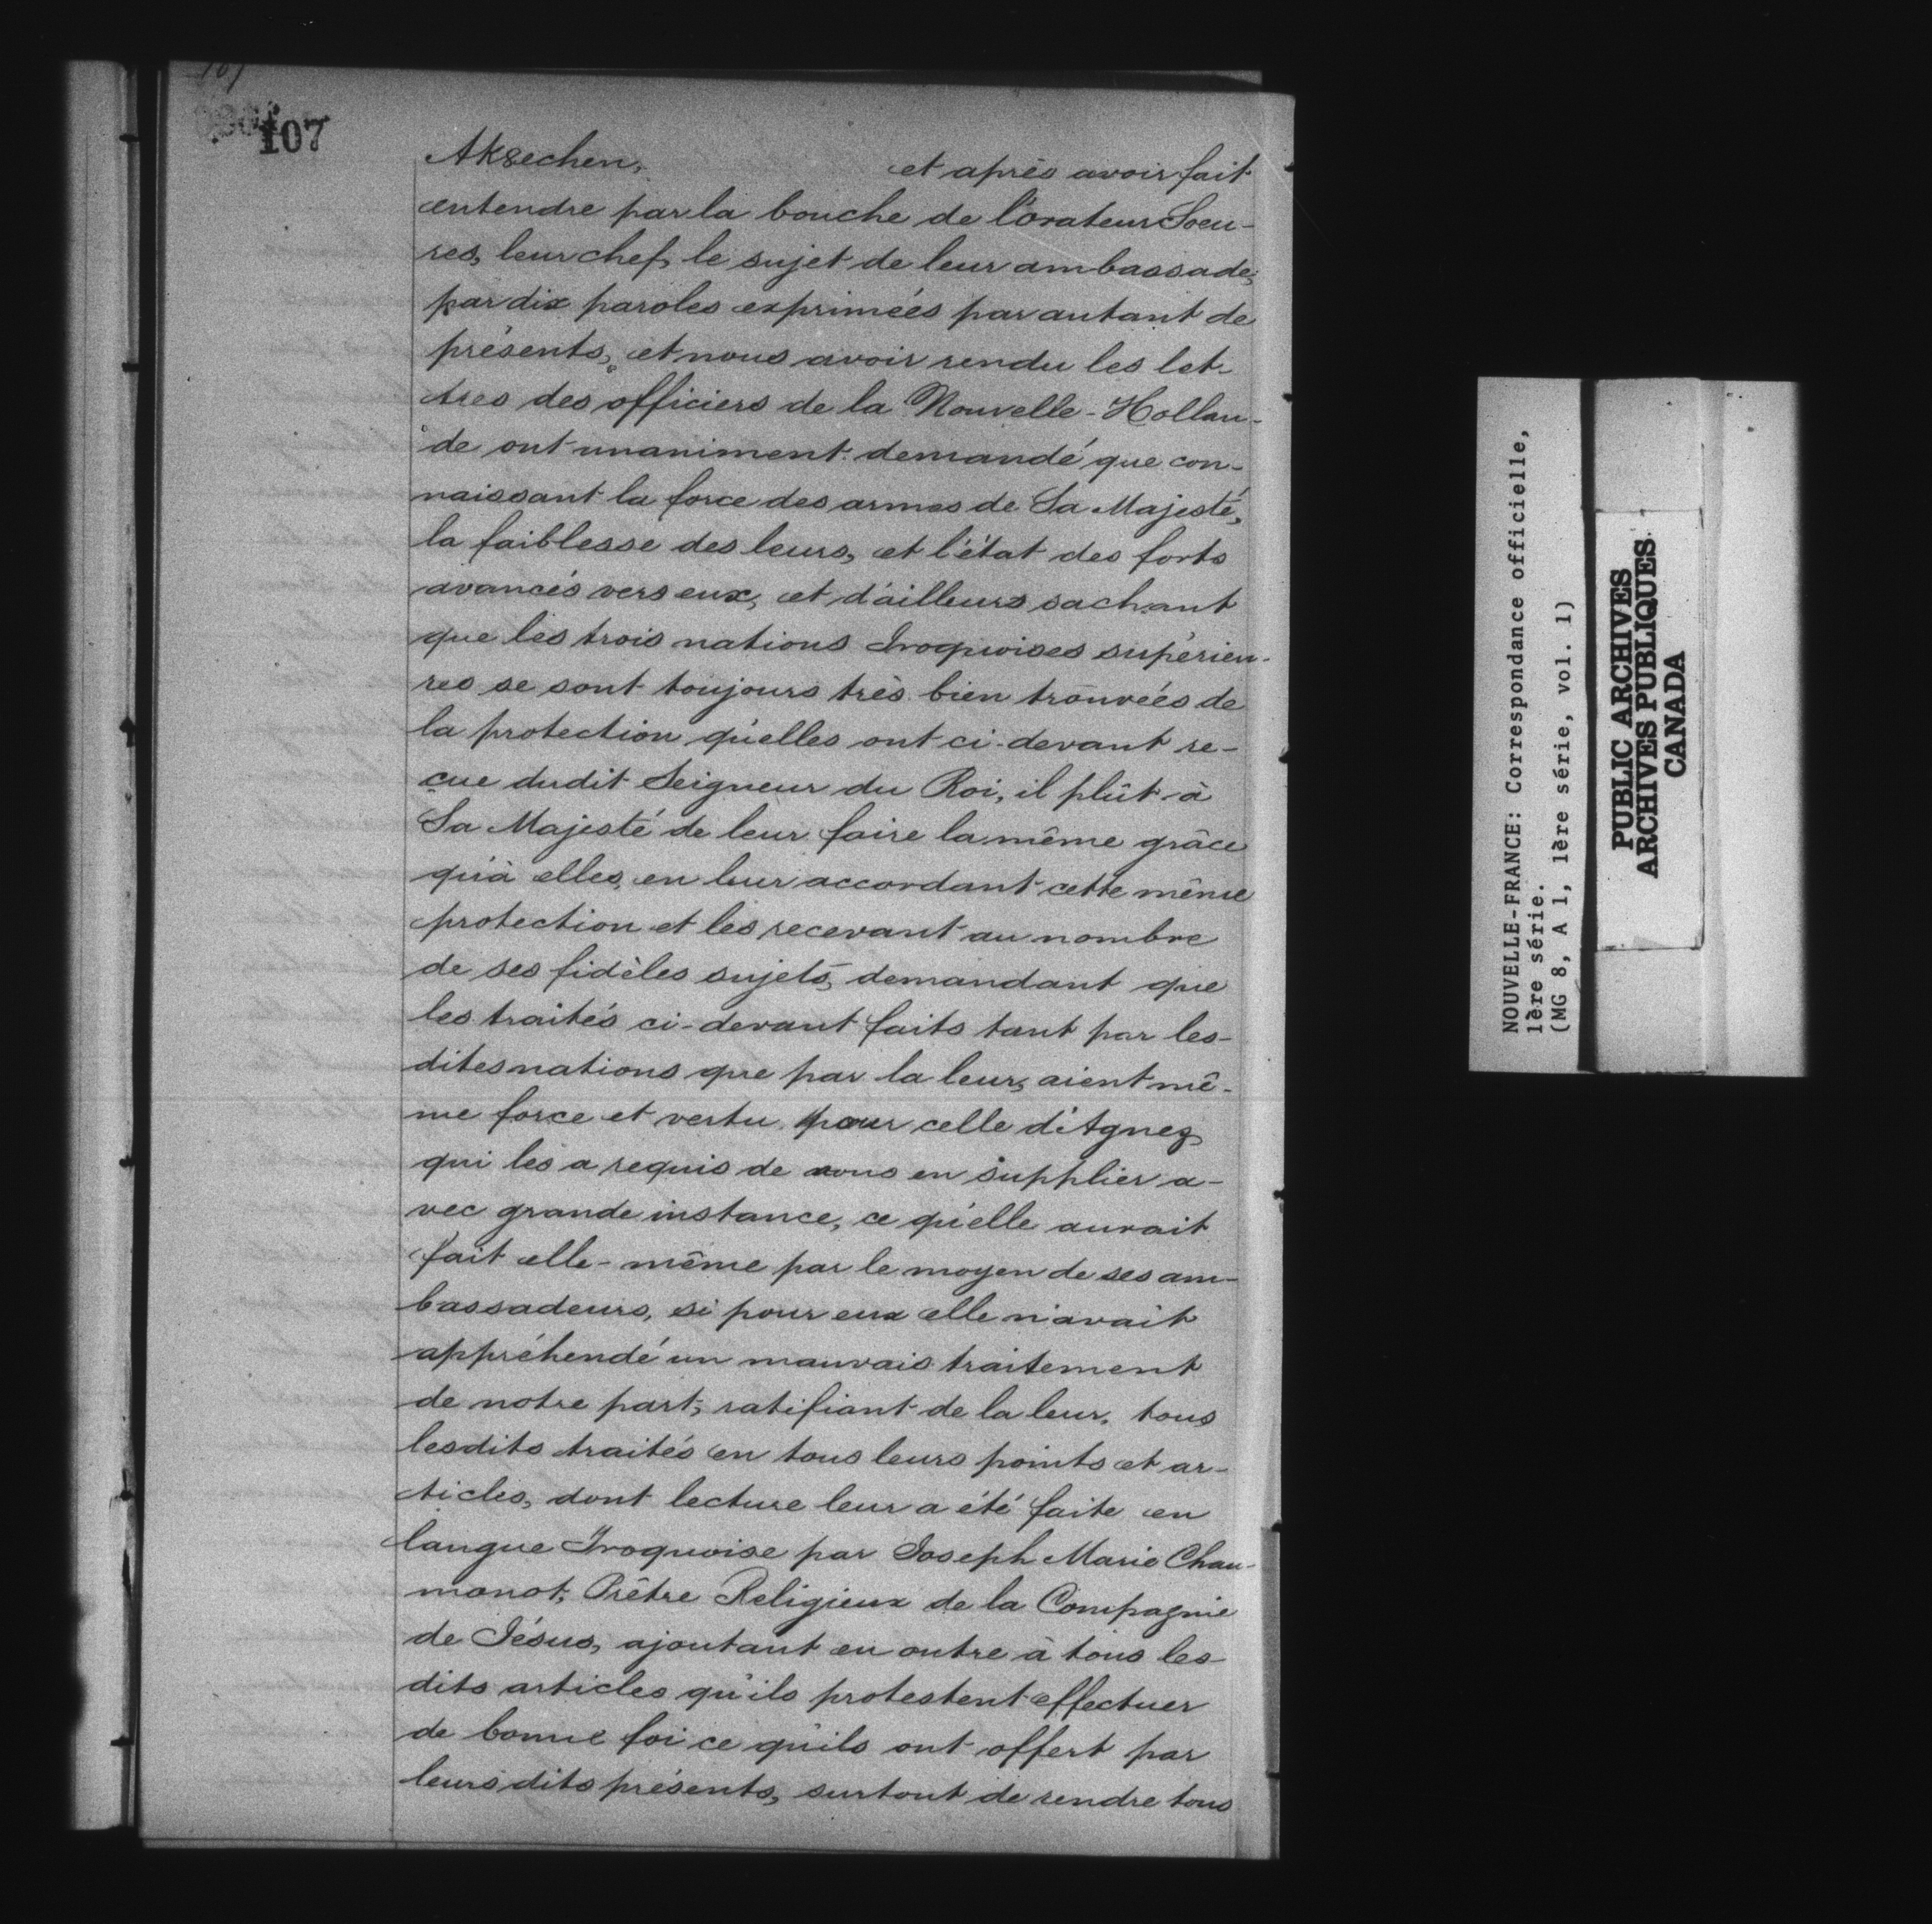 107
107
Akȣechen, et après avoir fait
entendre par la bouche de l'orateur Soeu-
res, leur chef, le sujet de leur ambassade,
par dix paroles exprimées par autant de
présents, et nous avoir rendu les let-
tres des officiers de la Nouvelle-Hollan-
de ont unaniment demandé que con-
naissant la force des armes de Sa Majesté,
la faiblesse des leurs, et l'état des forts
avancés vers eux, et d'ailleurs sachant
que les trois nations Iroquoises supérieu-
res se sont toujours très bien trouvées de
la protection qu'elles ont ci-devant re-
çue dudit Seigneur du Roi, il plût à
Sa Majesté de leur faire la même grâce
qu'à elles, en leur accordant cette même
protection et les recevant au nombre
de ses fidèles sujets, demandant que
les traités ci-devant faits tant par les-
dites nations que par la leur, aient mê-
me force et vertu pour celle d'Agnez
qui les a requis de nous en supplier a-
vec grande instance, ce qu'elle aurait
fait elle-même par le moyen de ses am-
bassadeurs, si pour eux elle n'avait
appréhendé un mauvais traitement
de notre part, ratifiant de la leur, tous
lesdits traités en tous leurs points et ar-
ticles, dont lecture leur a été faite en
langue Iroquoise par Joseph Marie Chau-
monot, Prêtre Religieux de la Compagnie
de Jésus, ajoutant en outre à tous les-
dits articles qu'ils protestent effectuer
de bonne foi ce qu'ils ont offert par
leursdits présents, surtout de rendre tous
NOUVELLE-FRANCE: Correspondance officielle,
1ère série.
(MG 8, A 1, 1ère série, vol. 1)
PUBLIC ARCHIVES
ARCHIVES PUBLIQUES
CANADA